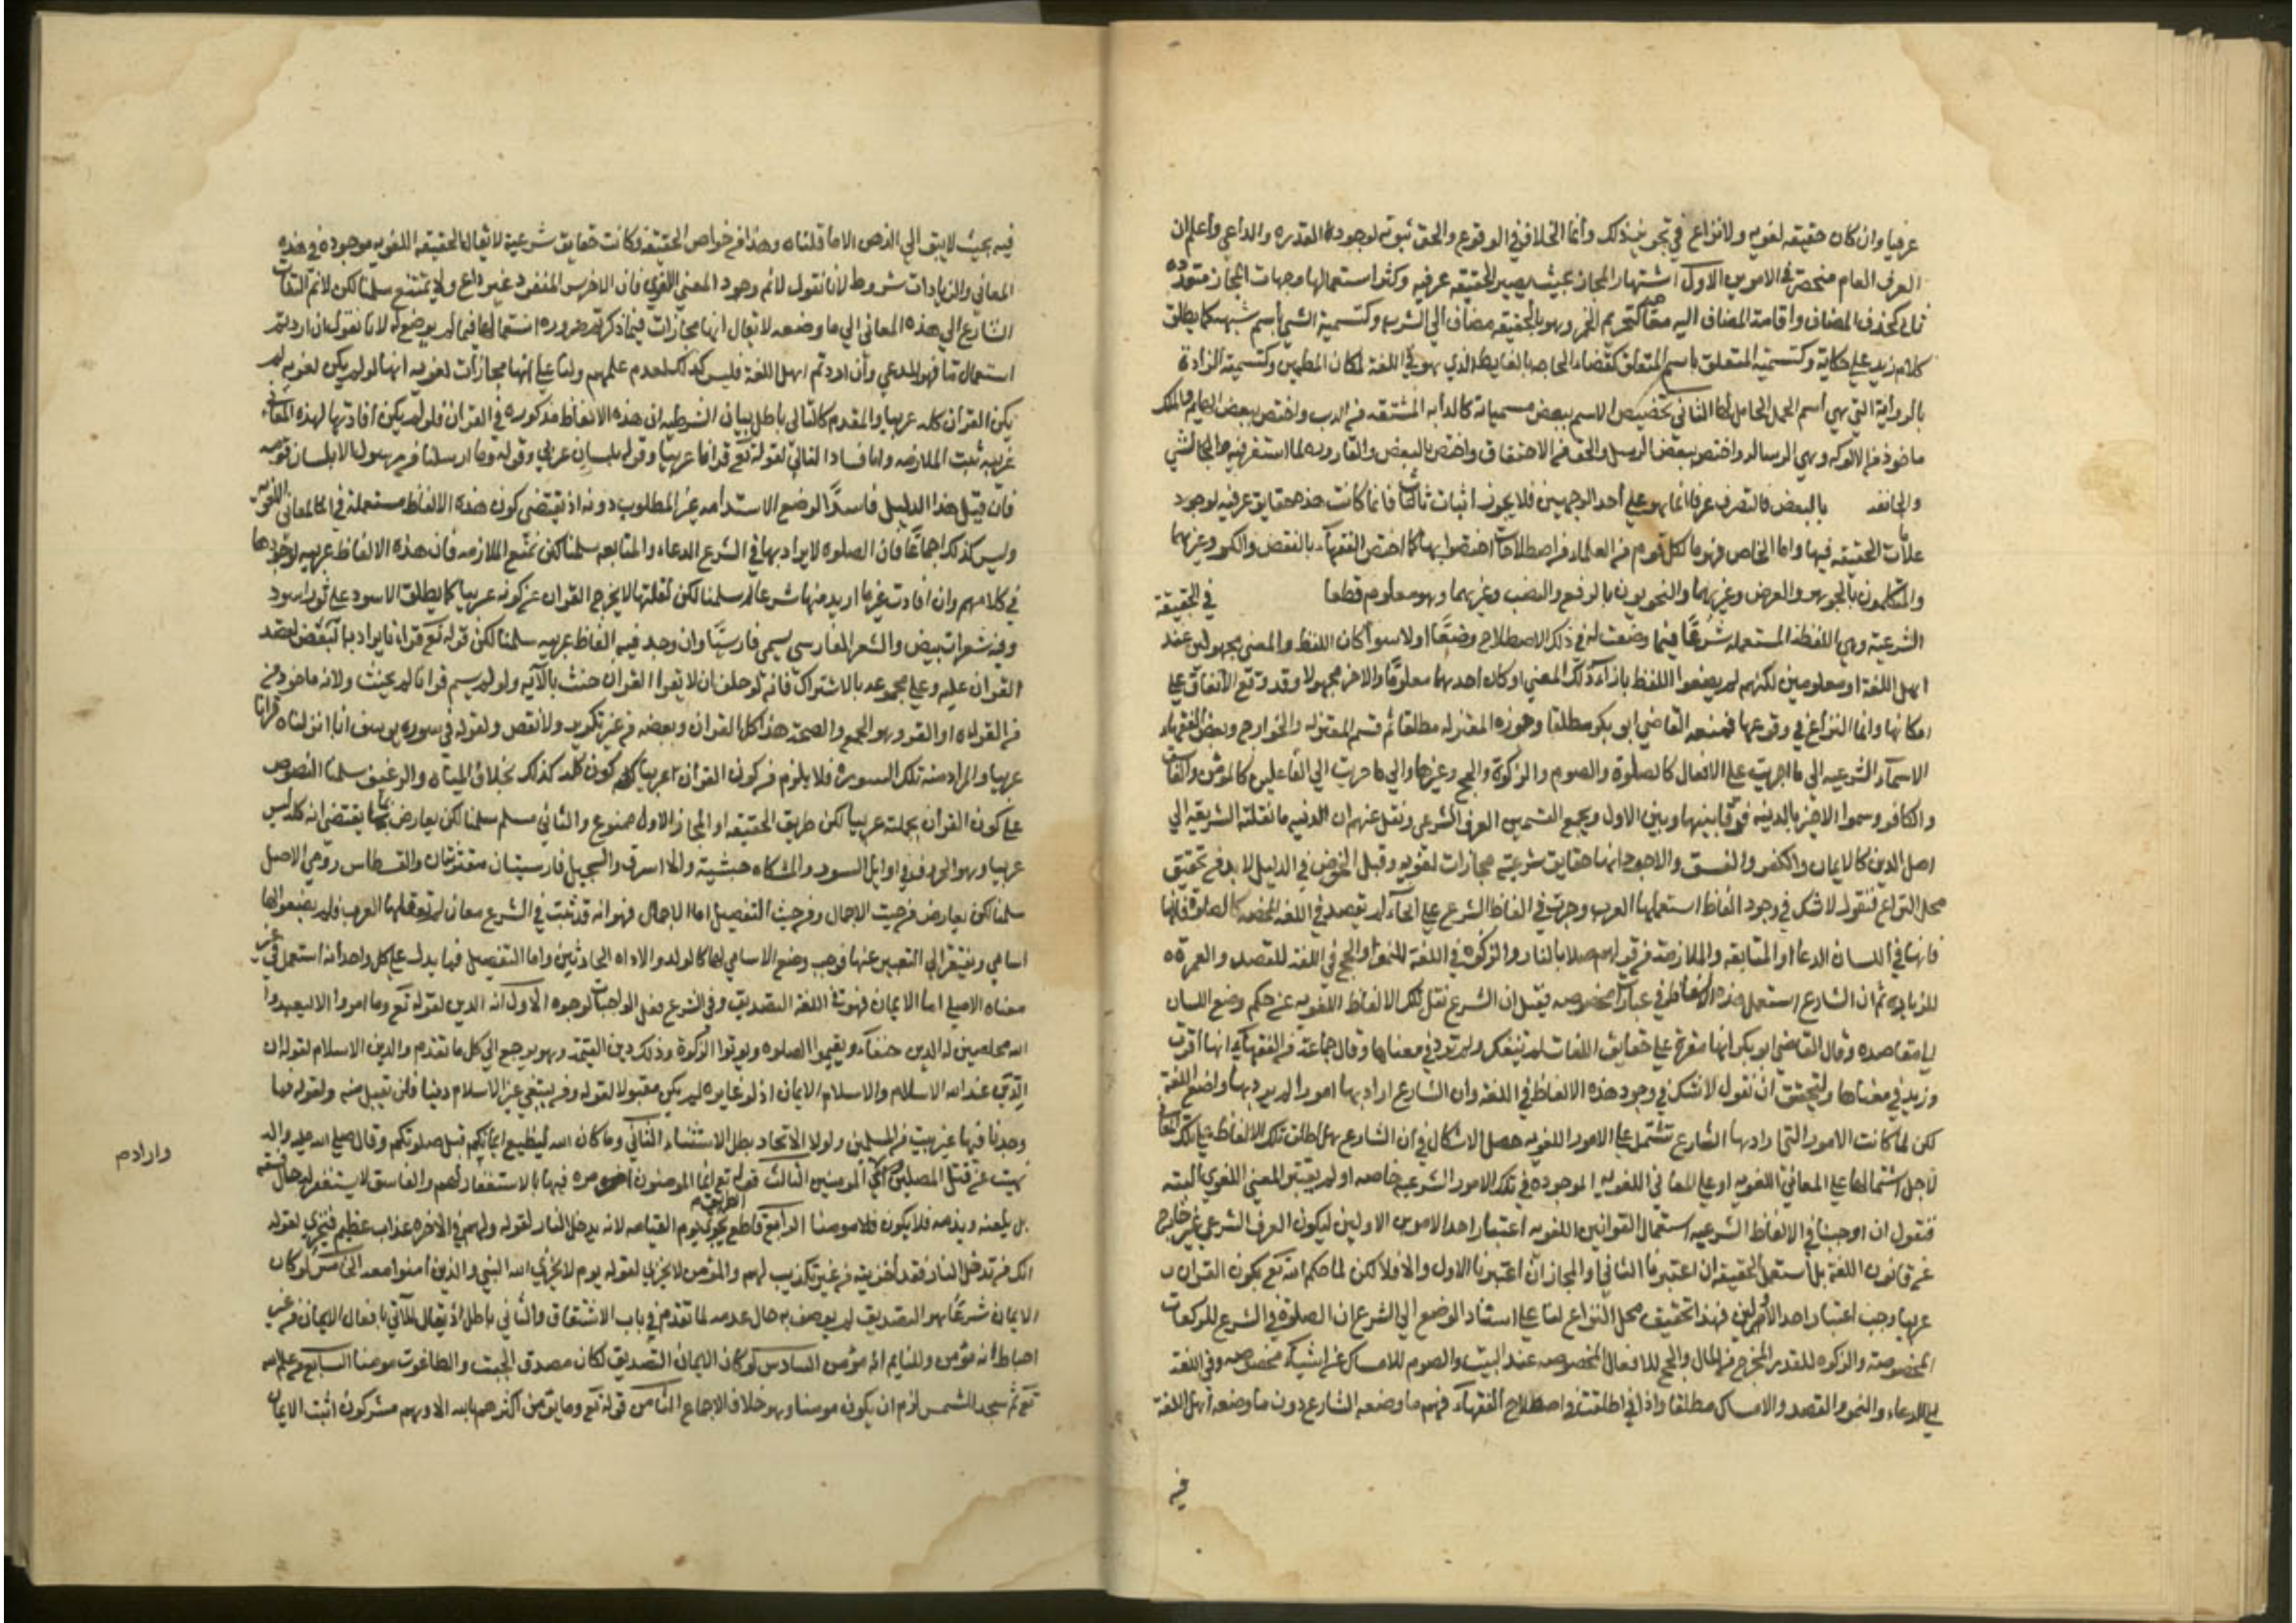 عرفيا وان كان حقيقه لغويه ولا نزاع في تجويز ذلك وانما الخلاف في الوقوع والحق ثبوته لوجود القدره والداعي واعلم ان
العرف العام منحصرة في الامرين الاول اشتهار المجاز بحيث يصير الحقيقه عرفيه وكثر استعمالها وجهات المجاز متعدده
كحذف المضاف واقامة المضاف اليه مقامه كتحريم الخمر وهو بالحقيقه مضاف الي الشرب وكتسمية الشي باسم شبهه كما يطلق
كلام زيد علي حكايته وكتسميه المتعلق باسم المتعلق كقضاء الحاجه بالغايط الذي هو في اللغة المكان المطمين وكتسمية المزادة
بالرواية التي هي اسم الجمل الحامل لها الثاني تخصيص الاسم ببعض مسمياته كالدابه المشتقه من الدب واختص ببعض البهايم والملك
ماخوذ من الالوكه وهي الرساله واختص ببعض الرسل والجن من الاجتنان واختص بالبعض والقاروره لما استقر فيه الشي
والخابيه بالبعض فالتصرف عرفا انما هو علي احد الوجهين فلا يجوز اثبات ثالث فانما كانت هذه حقايق عرفيه لوجود
علامات الحقيقه فيها واما الخاص فهو ما لكل قوم من العلماء من اصطلاحات اختصوا بها كما اختص الفقهاء بالنقض والكسر وغيرهما
والمتكلمون بالجوهر والعرض وغيرهما والنحويون بالرفع والنصب وغيرهما وهو معلوم قطعا في الحقيقة
الشرعية وهي اللفظة المستعمله شرعًا فيما وضعت له في ذلك الاصطلاح وضعًا اولا سوآ كان اللفظ والمعني مجهولين عند
اهل اللغة او معلومين لكنهم لم يضعوا اللفظ بازآء ذلك المعني او كان احدهما معلومًا والاخر مجهولا وقد وقع الاتفاق علي
امكانها وانما النزاع في وقوعها فمنعه القاضي ابو بكر مطلقا وجوزه المعتزله مطلقا ثم قسم المعتزله والخوارج وبعض الفقهاء
الاسمآء الشرعيه الي ما اجريت علي الافعال كالصلوة والصوم والزكوة والحج وغيرها والي ما جريت الي الفاعلين كالمؤمن والفاسق
والكافر وسموا الاخير بالدينيه فرقا بينها وبين الاول ويجمع القسمين العرف الشرعي ونقل عنهم ان الدينيه ما نقلته الشريعه الي
اصل الدين كالايمان والكفر والفسق والاجود انها حقايق شرعيه مجازات لغويه وقبل الخوض في الدليل لا بد من تحقيق
محل النزاع فنقول لا شك في وجود الفاظ استعملها العرب وجرت في الفاظ الشرع علي انحآء لم تقصد في اللغة المحضه كالصلوة
فانها في اللسان الدعاء او المتابعه والملازمة من قولهم صلا بالنار والزكوه في اللغة للنمو والحج في اللغة للقصد والعمرة
للزياره ثم ان الشارع استعمل هذه الالفاظ في عبادات مخصوصه فقيل ان الشرع نقل تلك الالفاظ اللغويه عن حكم وضع اللسان
الي مقاصده وقال القاضي ابو بكر انها مقرة علي حقايق اللغات لم تنقل ولم تزد في معناها وقال جماعة من الفقهآء انها اقرت
وزيد في معناها والتحقيق ان نقول لا شك في وجود هذه الالفاظ في اللغة وان الشارع اراد بها امورا لم يردها واضع اللغة
لكن لما كانت الامور التي ارادها الشارع تشتمل علي الامور اللغويه حصل الاشكال في ان الشارع هل اطلق تلك الالفاظ علي تلك المعاني
لاجل اشتمالها علي المعاني اللغويه او علي المعاني اللغويه الموجوده في تلك الامور الشرعيه خاصه او لم يعتبر المعني اللغوي البته
فنقول ان اوجبنا في الالفاظ الشرعيه استعمال القوانين اللغويه اعتبار احد الامرين الاولين ليكون العرف الشرعي غير خارج
عن قانون اللغة بل استعمل الحقيقه ان اعتبرنا الثاني والمجاز ان اعتبرنا الاول والا فلا لكن لما حكم الله تع بكون القران
عربيا وجب اعتبار احد الاولين فهذا تحقيق محل النزاع لنا علي استناد الوضع الي الشرع ان الصلوة في الشرع للركعات
المخصوصة والزكوه للقدر المخرج من المال والحج للافعال المخصوصه عند البيت والصوم للامساك عن اشيآء مخصوصه وفي اللغة
للدعاء والنمو والقصد والامساك مطلقا واذا اطلقت في اصطلاح الفقهآء فهم ما وضعه الشارع دون ما وضعه اهل اللغة
فيه
فيه بحيث لا يسبق الي الذهن الا ما قلناه وهذا من خواص الحقيقة فكانت حقايق شرعية لا يقال الحقيقه اللغويه موجوده في هذه
المعاني والزيادات شروط لانا نقول لا نم وجود المعني اللغوي فان الاخرس المنفرد غير داع ولا متبع سلمنا لكن لا نم التفات
الشارع الي هذه المعاني الي ما وضعه لا يقال انها مجازات فيما ذكرتم ضروره استعمالها فيما لم يوضع له لانا نقول ان اردتم
استعمال الشارع فهو المدعي وان اردتم اهل اللغة فليس كذلك لعدم علمهم ولنا علي انها مجازات لغويه انها لو لم يكن لغويه لم
يكن القران كله عربيا والمقدم كالتالي باطل بيان الشرطيه ان هذه الالفاظ مذكوره في القران فلو لم يكن افادتها لهذه المعاني
عربيه ثبت الملازمه واما فساد التالي لقوله تع قرانا عربيًا وقوله بلسان عربي وقوله وما ارسلنا من رسول الا بلسان قومه
فان قيل هذا الدليل فاسد الوضع لاستدامه غير المطلوب دونه اذ يقتضي كون هذه الالفاظ مستعملة في المعاني اللغويه
وليس كذلك اجماعًا فان الصلوه لا يراد بها في الشرع الدعاء والمتابعه سلمنا لكن نمنع الملازمه فان هذه الالفاظ عربيه لوجودها
في كلامهم وان افادت غير ما اريد منها شرعا سلمنا لكن لقلتها لا يخرج القران عن كونه عربيا كما يطلق الاسود علي ثور اسود
وفيه شعرات بيض والشعر الفارسي يسمي فارسيًا وان وجد فيه الفاظ عربيه سلمنا لكن قوله تع قرانا يراد به البعض لصدق
القران عليه وعلي مجموعه بالاشتراك فانه لو حلف ان لا يقرا القران حنث بالآيه ولو لم يسم قرانا لم يحنث ولانه ماخوذ من
من القراه او القرو وهو الجمع والصحة هذا كل القران وبعضه من غير تكرير ولا نقص ولقوله في سوره يوسف انا انزلناه قرانا
عربيا والمراد منه تلك السورة فلا يلزم من كون القران عربيا كون كله كذلك بخلاف المياه والرغيف سلمنا النصوص
علي كون القران بجملته عربيا لكن طريق الحقيقه او المجاز الاول ممنوع والثاني مسلم سلمنا لكن يعارض بما يقتضي انه كله ليس
عربيا وهو الحروف في اوايل السور والمشكاه حبشية والاستبرق والسجيل فارسيتان معربتان والقسطاس رومي الاصل
سلمنا لكن يعارض من حيث الاجمال ومن حيث التفصيل اما الاجمال فهو انه قد ثبت في الشرع معان لم تعقلها العرب فلم يضعوا لها
اسامي ويفتقر الي التعبير عنها فوجب وضع الاسامي لها كالولد والاداه الحادثين واما التفصيل فبما يدل علي كل واحد انه استعمل في غير
معناه الاصلي اما الايمان فهو في اللغة التصديق وفي الشرع فعل الواجبات لوجوه الاول انه الدين لقوله تع وما امروا الا ليعبدوا
الله مخلصين له الدين حنفآء ويقيموا الصلوه ويؤتوا الزكوة وذلك دين القيمة وهو يرجع الي كل ما تقدم والدين الاسلام لقوله ان
الدين عند الله الاسلام والاسلام الايمان اذ لو غايره لم يكن مقبولا لقوله ومن يبتغ غير الاسلام دينا فلن يقبل منه ولقوله فما
وجدنا فيها غير بيت من المسلمين ولولا الاتحاد بطل الاستثناء الثاني وما كان الله ليضيع ايمانكم قبل صلوتكم وقال صلي الله عليه واله
نهيت عن قتل المصلين المؤمنين الثالث قوله تع انما المؤمنون فيها بالاستغفار لهم والفاسق لا يستغفر له حال فسقه
بل يلعنه ويذمه فلا يكون مومنا الرابع قاطع الطريق يخزي يوم القيامه لانه يدخل النار لقوله ولهم في الاخره عذاب عظيم فيخزي لقوله
انك من تدخل النار فقد اخزيته من غير تكذيب لهم والمؤمن لا يخزي لقوله يوم لا يخزي الله النبي والذين امنوا معه الخامس لو كان
الايمان شرعًا هو التصديق لم يوصف به حال عدمه لما تقدم في باب الاشتقاق والتالي باطل اذ يقال للآتي بافعال الايمان من غير
احباط انه مؤمن وللنايم انه مؤمن السادس لو كان الايمان التصديق لكان مصدق الجبت والطاغوت مومنا السابع من علم الله
تع ثم سجد للشمس لزم ان يكون مومنا وهو خلاف الاجماع الثامن قوله تع وما يؤمن اكثرهم بالله الا وهم مشركون اثبت الايمان